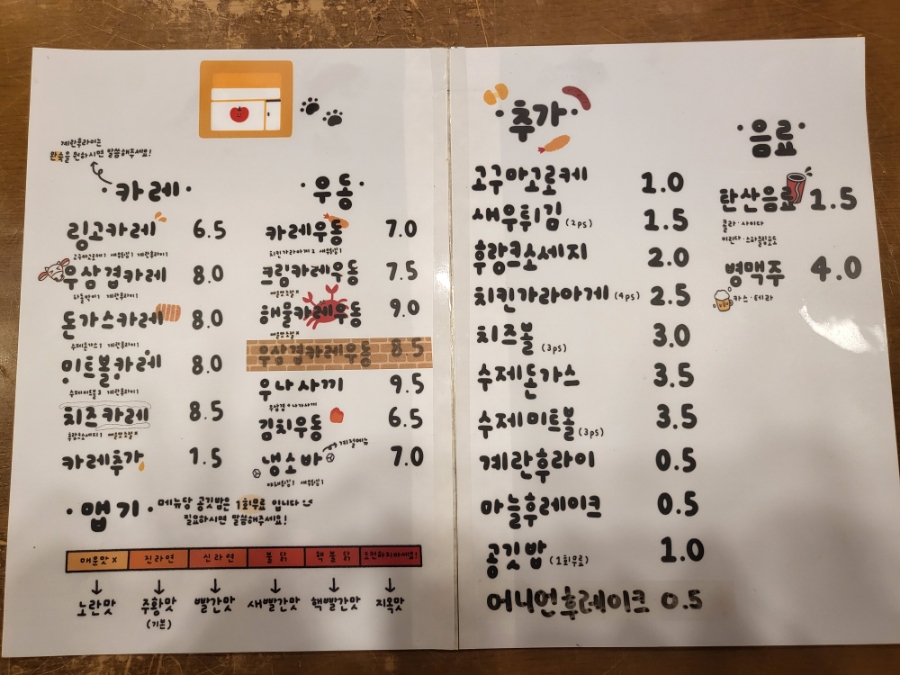 계란후라이는
반숙을 원하시면 말씀해주세요!
·카레·
링고카레 6.5
우삼겹카레 8.0
돈가스카레 8.0
미트볼카레 8.0
치즈카레 8.5
카레추가 1.5
·우동·
카레우동 7.0
크림카레우동 7.5
해물카레우동 9.0
우삼겹카레우동 8.5
우나사끼 9.5
우삼겹+나가사끼
김치우동 6.5
냉소바 7.0
계절메뉴
·맵기·
메뉴당 공깃밥은 1회무료 입니다
필요하시면 말씀해주세요!
매운맛 X 진라면 신라면 불닭 핵불닭 도전하지마세요!
노란맛 주황맛 빨간맛 새빨간맛 핵빨간맛 지옥맛
(기본)
·추가·
고구마고로케 1.0
새우튀김 (2ps) 1.5
후랑크소세지 2.0
치킨가라아게 (4ps) 2.5
치즈볼 (3ps) 3.0
수제돈가스 3.5
수제미트볼 (3ps) 3.5
계란후라이 0.5
마늘후레이크 0.5
공깃밥 (1회무료) 1.0
어니언후레이크 0.5
·음료·
탄산음료 1.5
콜라·사이다
병맥주 4.0
카스·테라